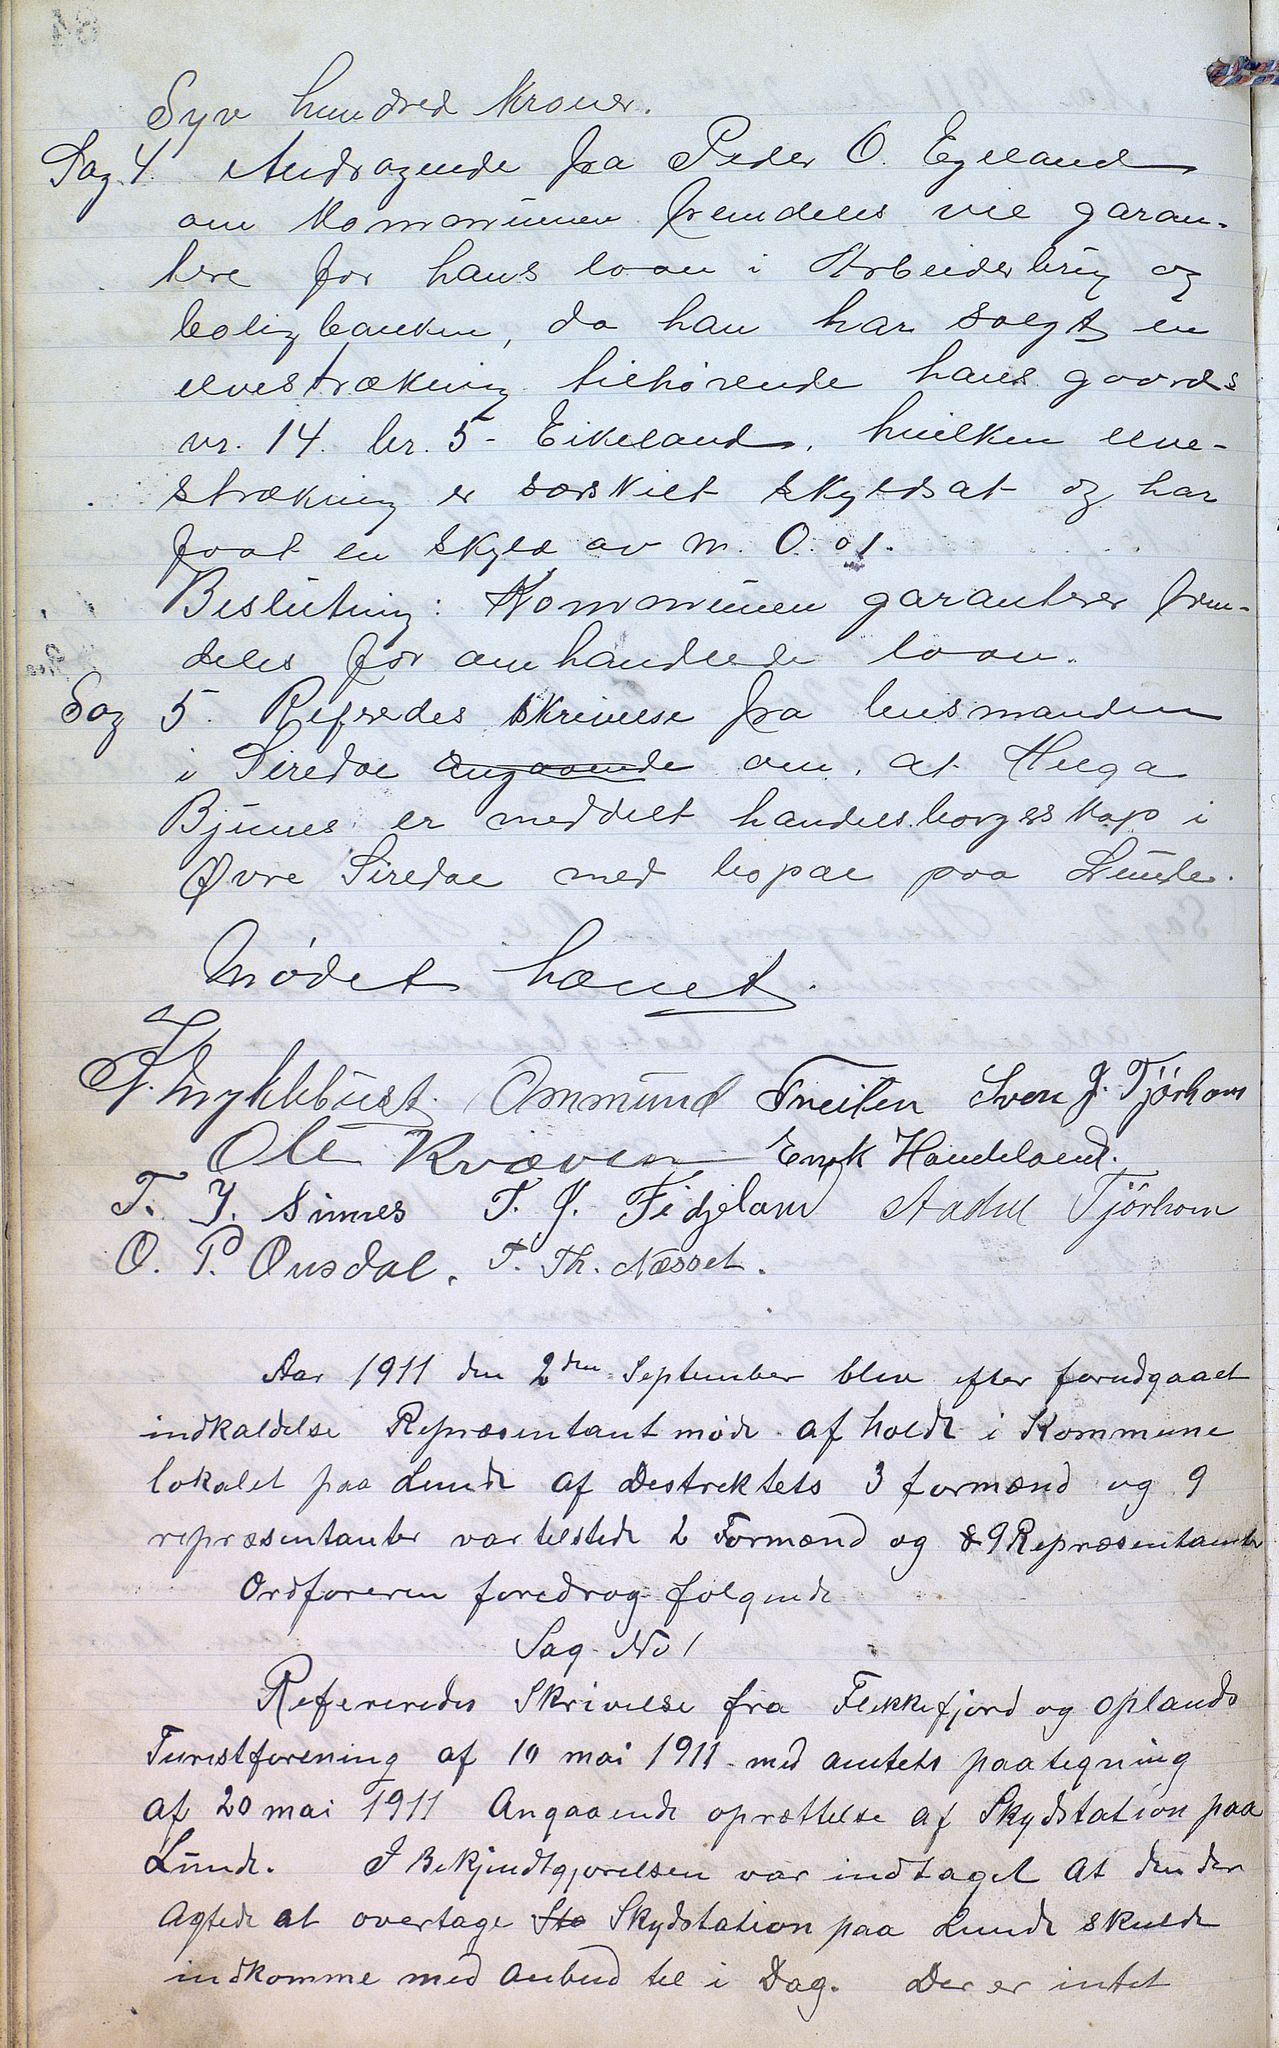 Syv hundred kroner.
Sag 4. Andragende fra Peder O. Egeland
om kommunen fremdeles vil garan-
tere for hans laan i Arbeiderbrug og
boligbanken, da han har solgt en
elvestrækning tilhørende hans gaards
nr. 14. br. 5 - Eikeland, hvilken elve-
strækning er særskilt skyldsat og har
faat en skyld av m. 0.01.
Beslutning: Kommunen garanterer frem-
deles for omhandlede laan.
Sag 5. Refredes skrivelse fra lensmanden
i Siredal angaaende om, at Helga
Bjunes er meddelt handelsborgerskap i
Øvre Siredal med bopæl paa Lunde.
Mødet hævet.
Myklebust. Ommund Tveiten Sven J. Tjørhom
Ole Kvæven Enok Handeland.
T. J. Sinnes T. J. Fidjeland Aadel Tjørhom
O. P. Ousdal. T. Th. Næsset.
Aar 1911 den 2den September blev efter forudgaaet
indkaldelse Repræsentantmøde afholdt i Kommune
lokalet paa Lunde af Destrektets 3 formænd og 9
repræsentanter var tilstede 2 Formænd og 9 Repræsentanter
Ordforeren foredrog folgende
Sag No 1
Refereredes Skrivelse fra Flekkefjord og oplands
Turistforening af 10 mai 1911 med amtets paategning
af 20 mai 1911 Angaaende oprættelse af Skydstation paa
Lunde. I Bekjendtgjorelsen var indtaget At den der
Agtede at overtage Sta Skydstation paa Lunde skulde
indkomme med Anbud til i Dag. Der er intet